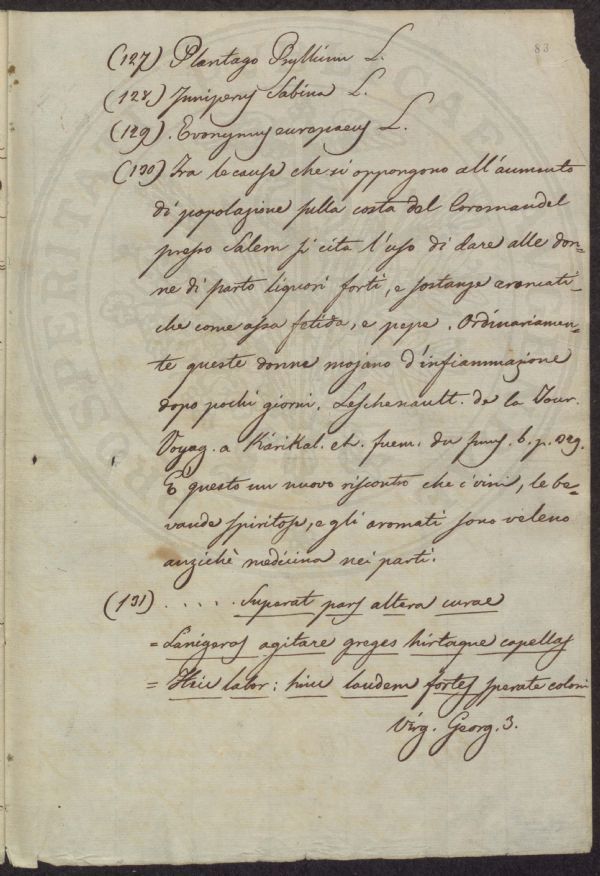 83
(127) Plantago Psyllium L.
(128) Juniperus Sabina L.
(129). Evonymus europaeus L.
(130) Fra le cause che si oppongono all'aumento
di popolazione sulla costa del Coromandel
presso Salem si cita l'uso di dare alle don=
ne di parto liquori forti, e sostanze aromati=
che come assa fetida, e pepe. Ordinariamen=
te queste donne mojano d'infiammazione
dopo pochi giorni. Leschenault. de la Tour.
Voyag. a Kárikal. et. du p.
E' questo un nuovo riscontro che i vini, le be=
vande spiritose, e gli aromati sono veleno
anzichè medicina nei parti.
(131) ..... Superat pars altera curae
= Lanigeros agitare greges hirtasque capellas
= Hic labor: hinc laudem fortes sperate coloni
Virg. Georg. 3.